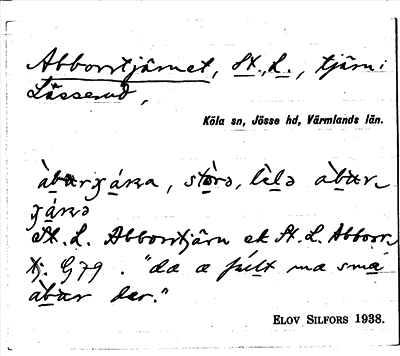 Abborrtjärnet, St., L., tjärn i
Lässerud,
Köla sn, Jösse hd, Värmlands län.
àbarχǽ́ɳa, stòrə, lìlə àbar-
St. L. Abborrtjärn ek St. L. Abborr-
tj. G79. "dä ä fullt mä små
àbar der."
ELOV SILFORS 1938.